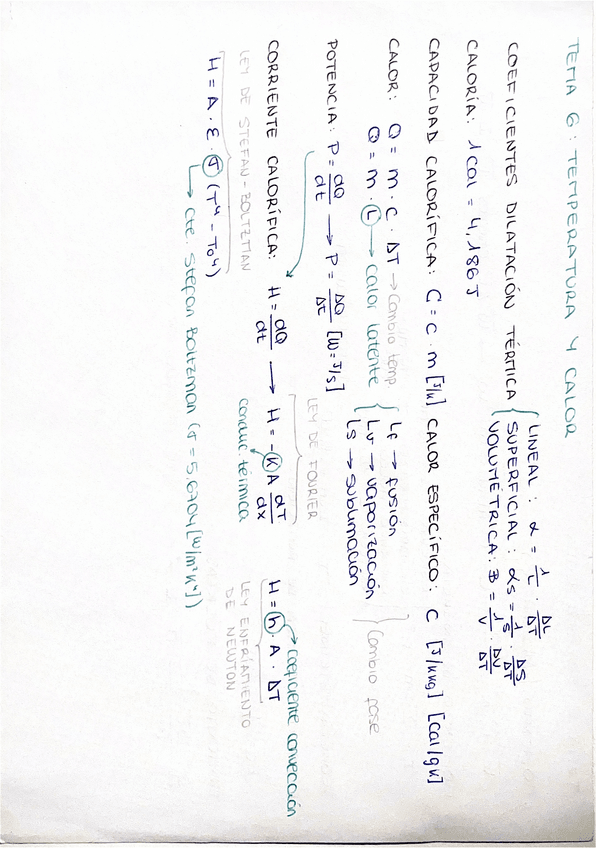 TEMA 6: TEMPERATURA Y CALOR
COEFICIENTES DILATACIÓN TÉRMICA { LINEAL: α = 1/L · ΔL/ΔT
SUPERFICIAL: αs = 1/S · ΔS/ΔT
VOLUMÉTRICA: B = 1/V · ΔV/ΔT
CALORÍA: 1 cal = 4,186 J
CAPACIDAD CALORÍFICA: C = c · m [J/K] CALOR ESPECÍFICO: C [J/K kg] [cal/g K]
CALOR: Q = m · c · ΔT → Cambio temp.
Q = m · L → calor latente { Lf → fusión
Lv → vaporización
Ls → sublimación
} Cambio fase
POTENCIA: P = dQ/dt → P = ΔQ/Δt [W = J/s]
CORRIENTE CALORÍFICA: H = dQ/dt → H = -K A dT/dx
LEY DE FOURIER
conduc. térmica
H = h · A · ΔT
coeficiente convección
LEY ENFRIAMIENTO
DE NEWTON
LEY DE STEFAN-BOLTZMAN
H = A · ε · σ (T⁴ - To⁴)
cte. Stefan Boltzman (σ = 5,6704 [W/m²K⁴])